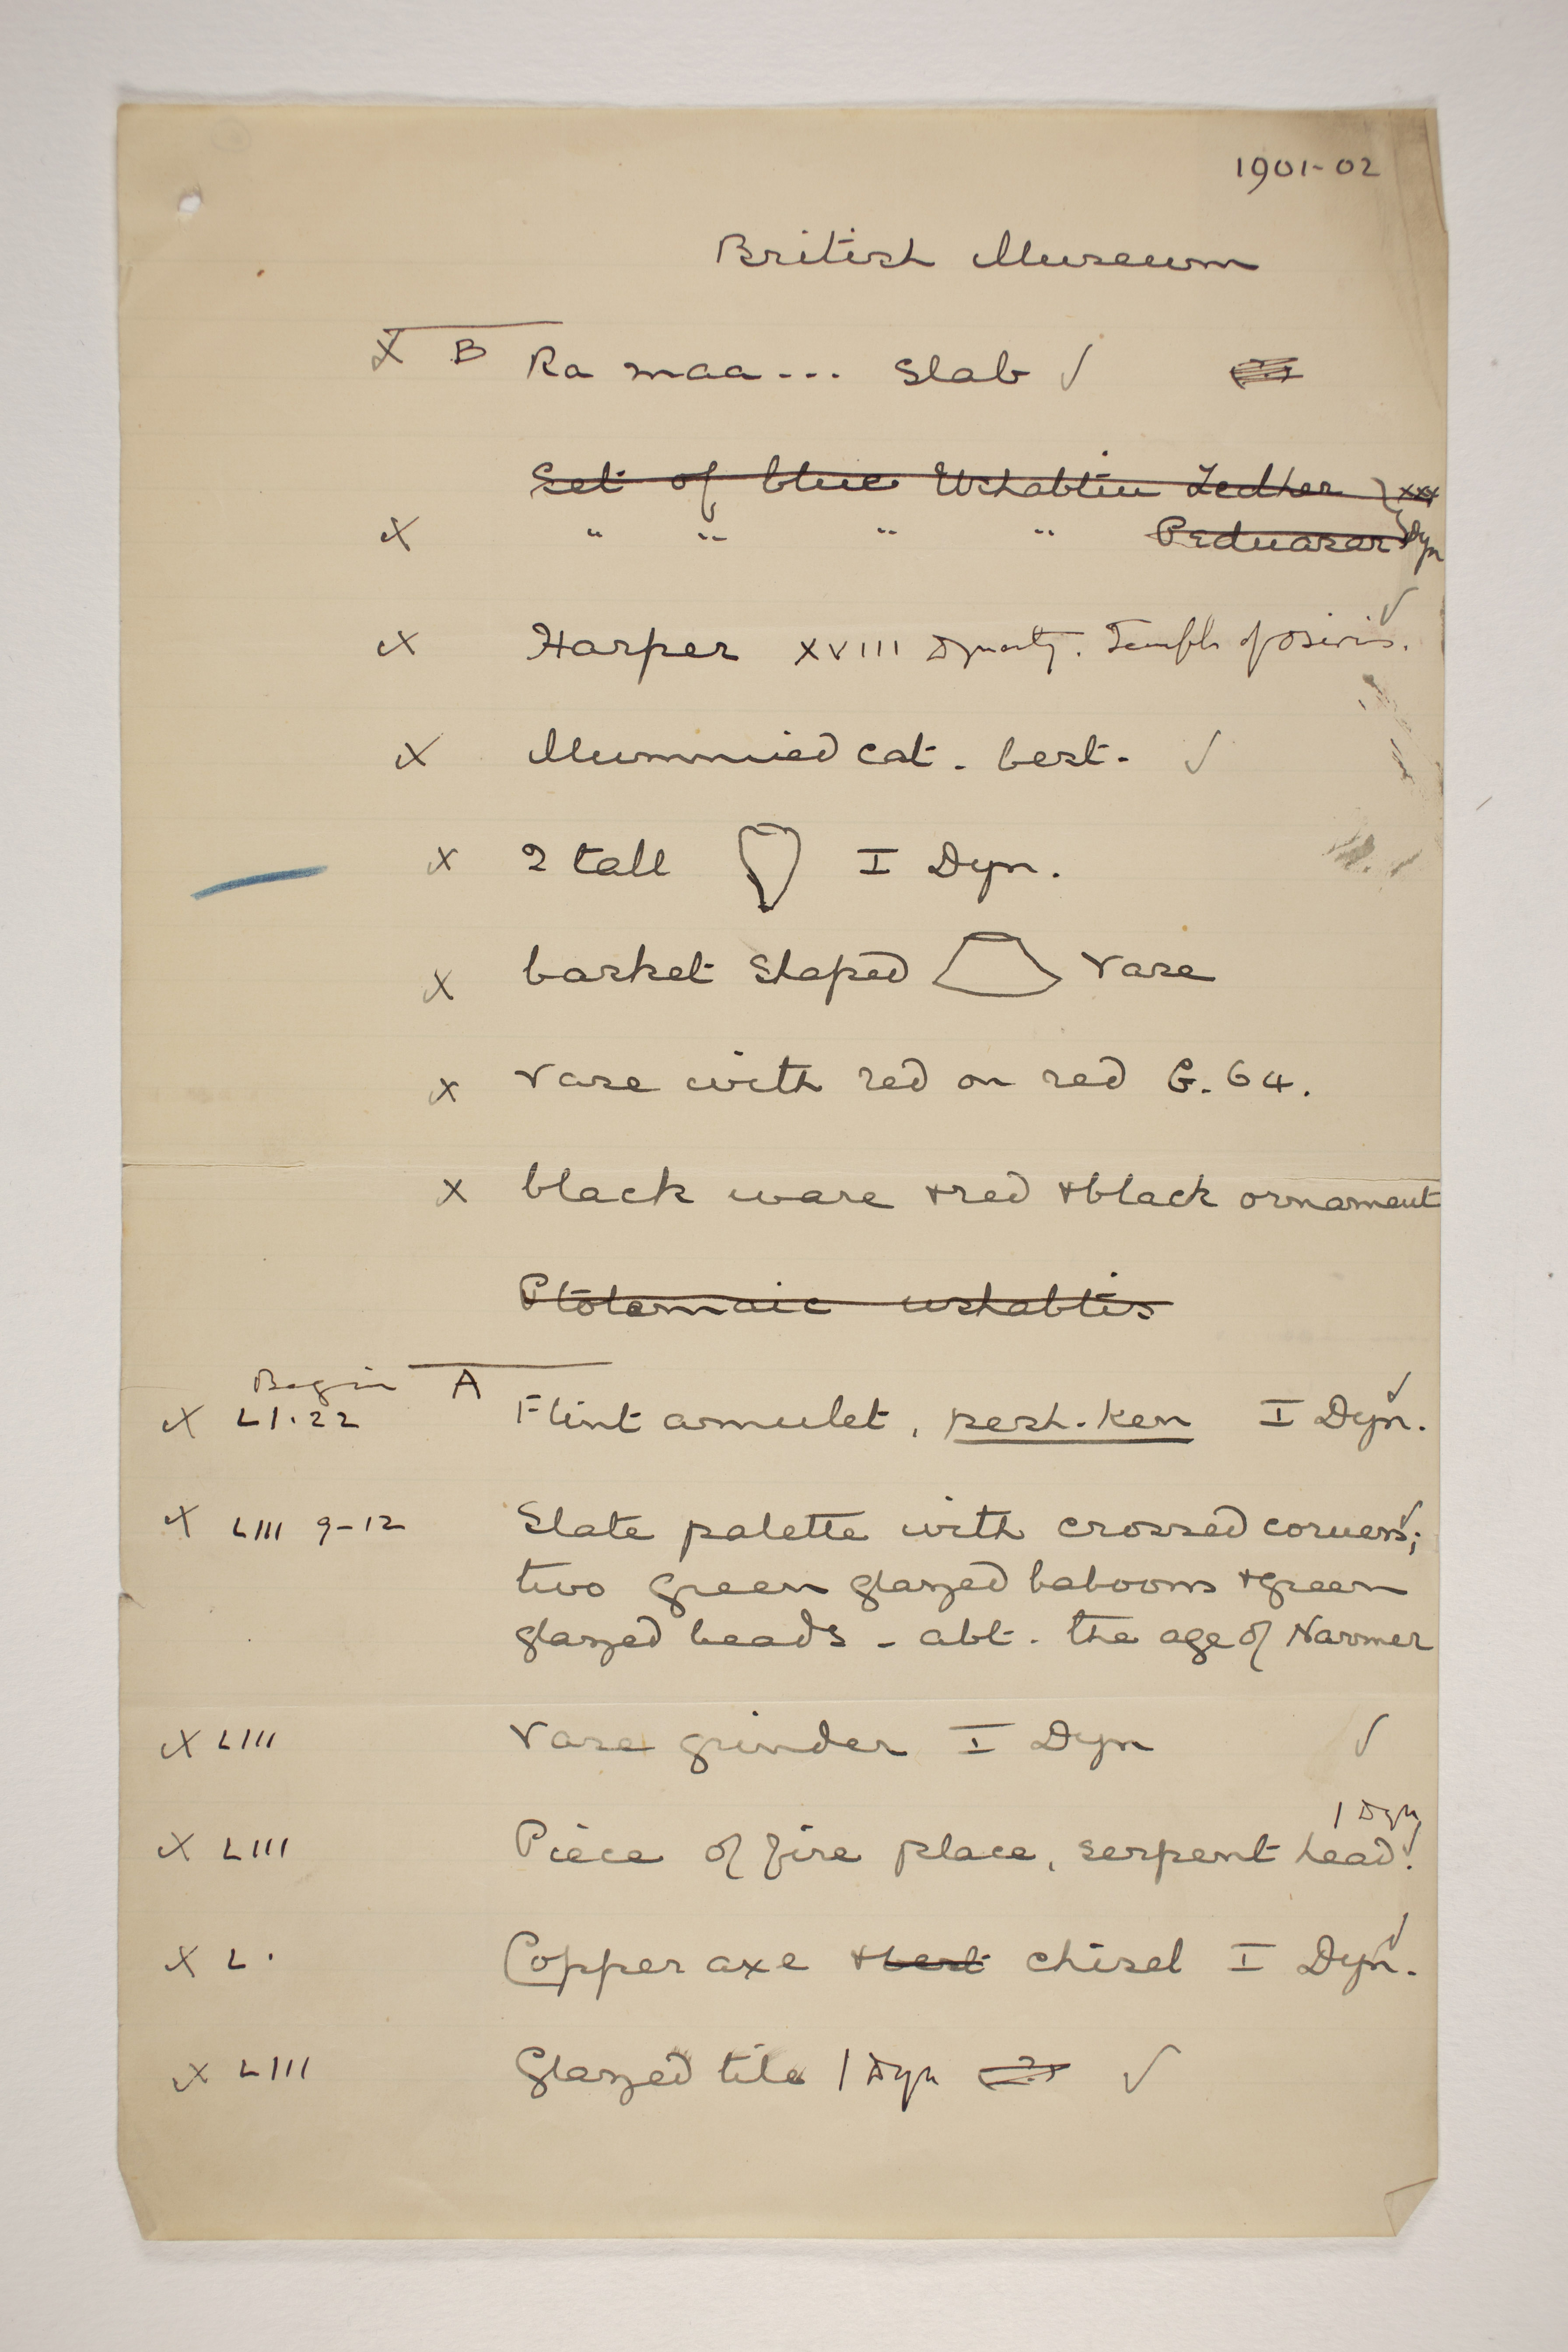 1901-02
British Museum
X B Ra maa--- Slab ✓
Set of blue Ushabtiu Zedher } XXX
X " " " " Peduasar Dyn
X Harper XVIII Dynasty. Temple of Osiris. ✓
X Mummied cat - best - ✓
X 2 tall I Dyn.
X basket shaped vase
X Vase with red on red G. 64.
X black ware + red + black ornament
Ptolemaic ushabtis
Begin A
X LI.22 Flint amulet, pesh-ken I Dyn. ✓
X LIII 9-12 Slate palette with crossed corners; ✓
two green glazed baboons + green
glazed beads - abt. the age of Narmer
X LIII Vase grinder I Dyn ✓
1 Dyn
X LIII Piece of fire place, serpent head. ✓
X L. Copper axe + best chisel I Dyn. ✓
X LIII Glazed tile 1 Dyn ✓